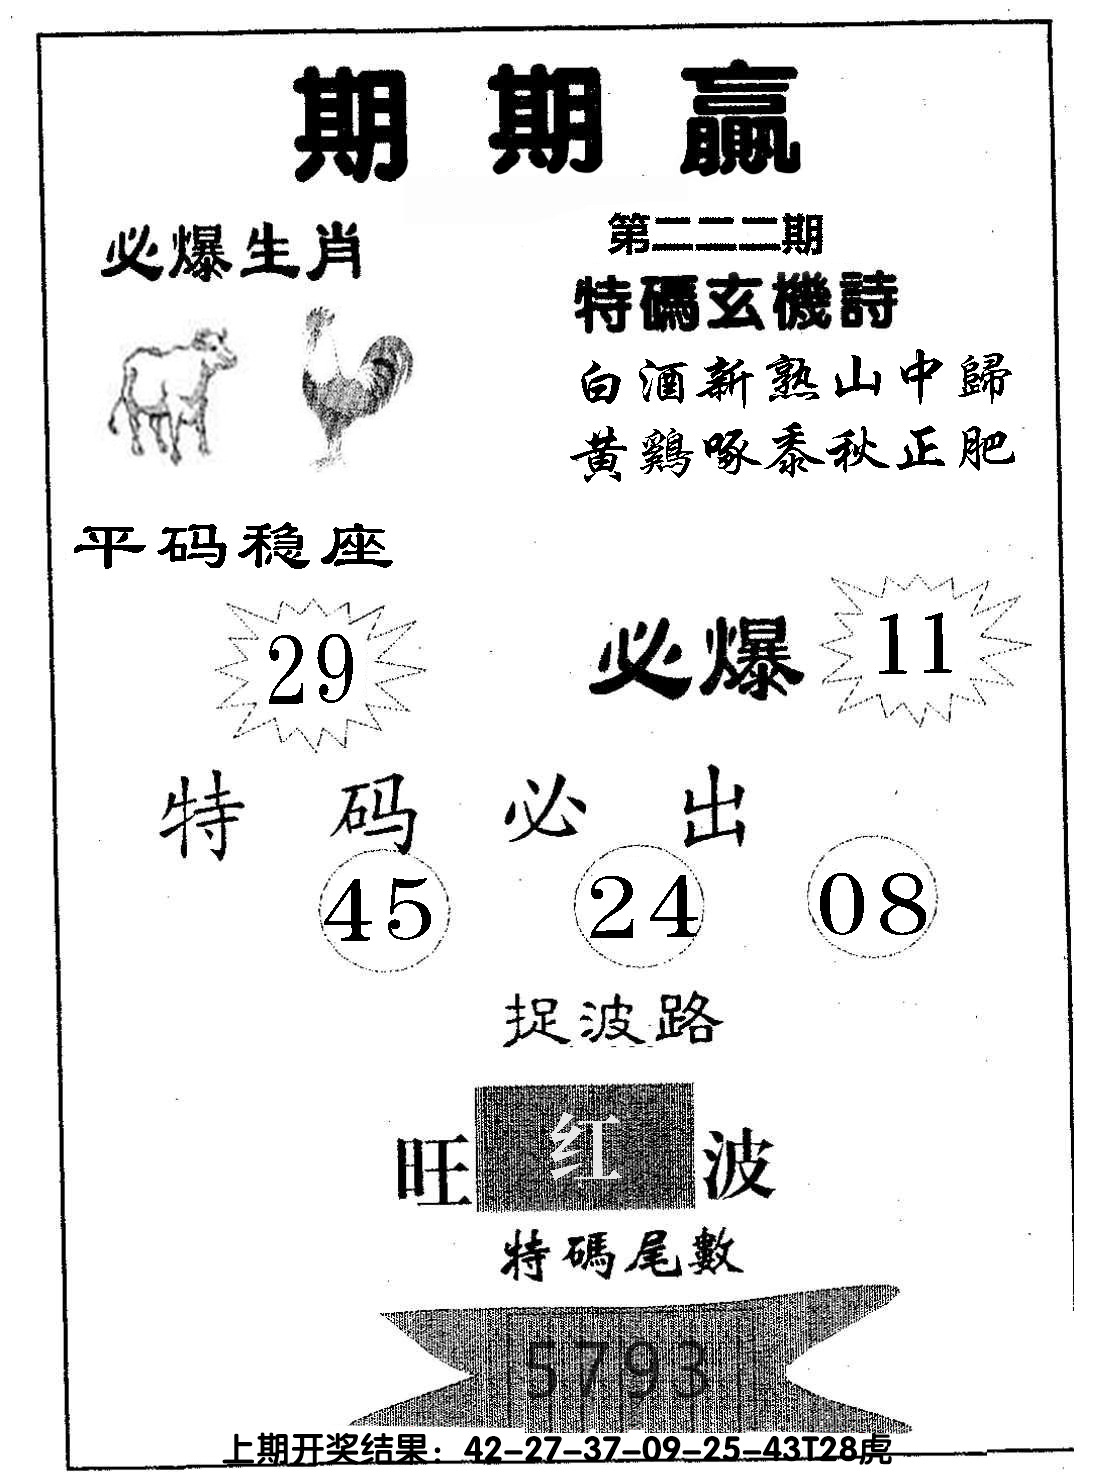 期期赢
必爆生肖
第二二二期
特碼玄機詩
白酒新熟山中歸
黄鷄啄黍秋正肥
平码稳座
29
必爆 11
特码必出
45 24 08
捉波路
旺 红 波
特碼尾數
5793
上期开奖结果：42-27-37-09-25-43T28虎